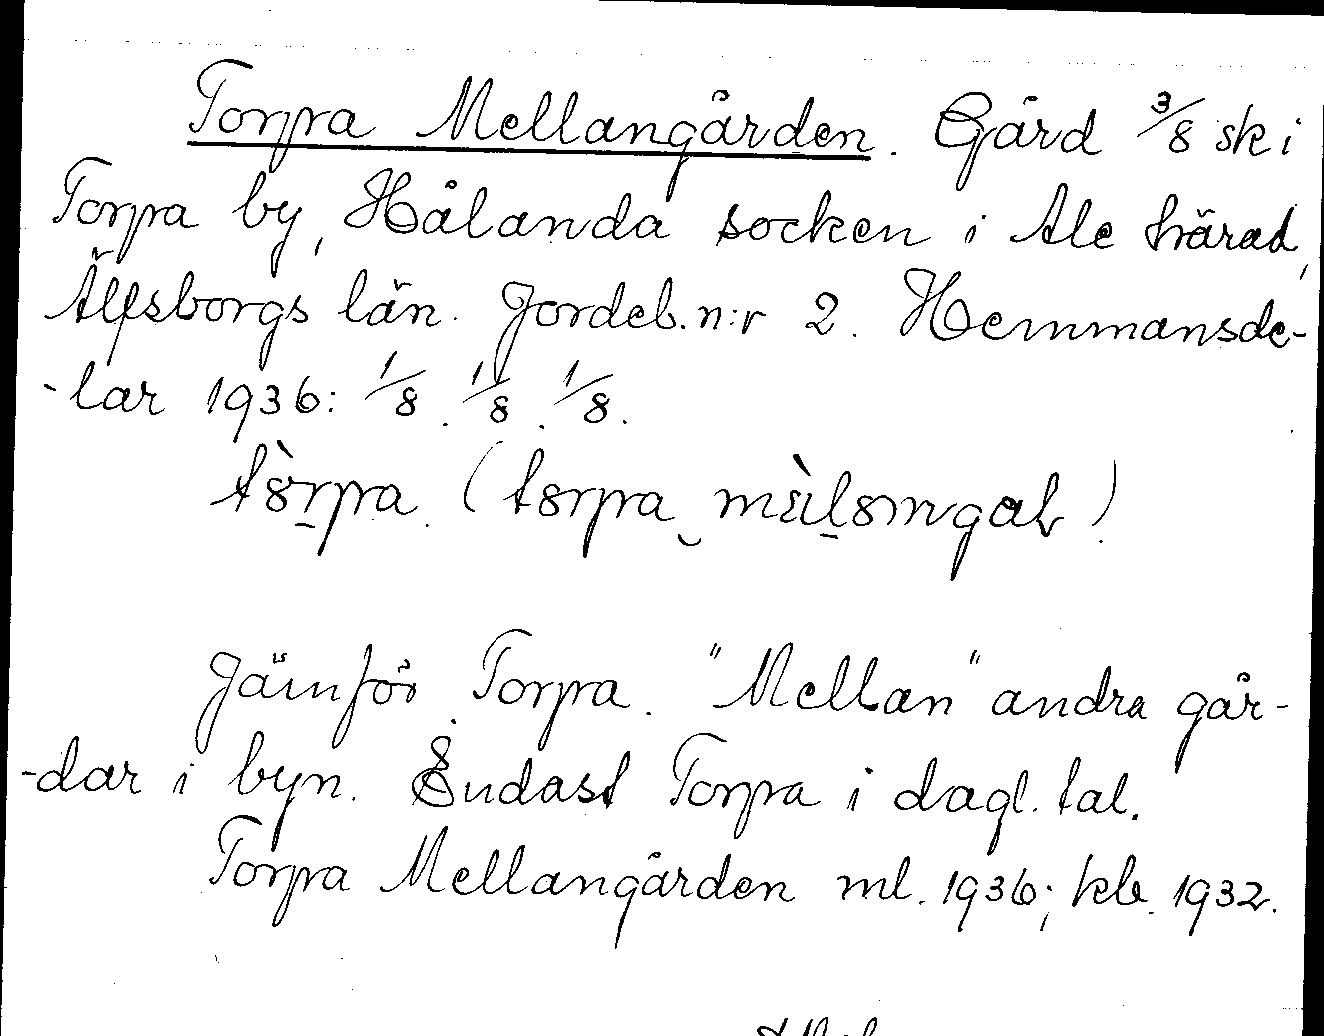 Torpa Mellangården. Gård 3/8 sk i
Torpa by, Hålanda socken i Ale härad,
Älfsborgs län. Jordeb. n:r 2. Hemmansde-
-lar 1936: 1/8. 1/8. 1/8.
Jämför Torpa. "Mellan" andra går-
-dar i byn. Endast Torpa i dagl. tal.
Torpa Mellangården ml. 1936; kb. 1932.